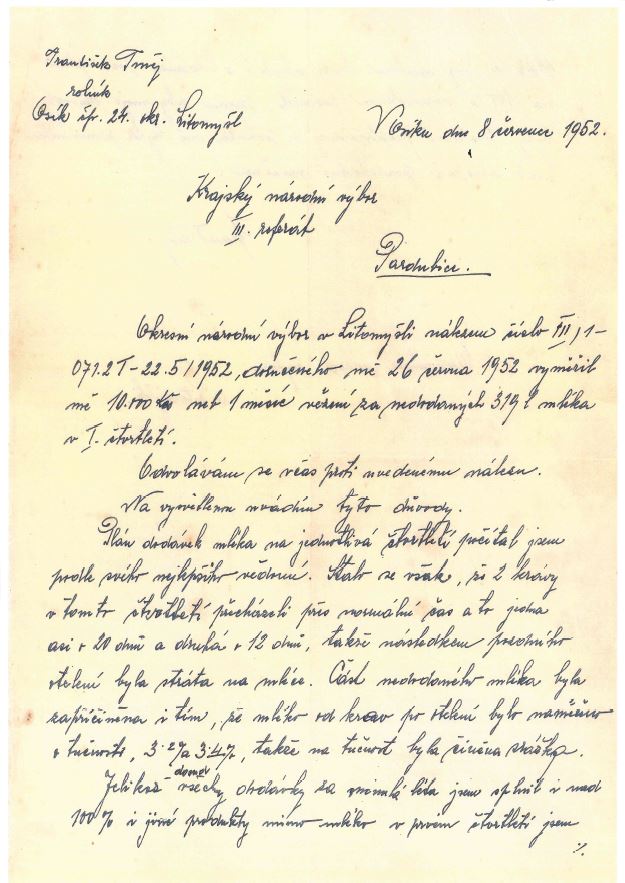 František Tměj
rolník
Osík čp. 24. okr. Litomyšl
V Osíku dne 8 července 1952.
Krajský národní výbor
III. referát
Pardubice.
Okresní národní výbor v Litomyšli nálezem číslo III/1-
071.2 T-22.5/1952, doručeného mě 26 června 1952 vyměřil
mě 10.000 Kčs neb 1 měsíc vězení za nedodaných 319 l mlíka
v I. čtvrtletí.
Odvolávám se včas proti uvedenému nálezu.
Na vysvětlenou uvádím tyto důvody.
Plán dodávek mlíka na jednotlivá čtvrtletí počítal jsem
podle svého nejlepšího vědomí. Stalo se však, že 2 krávy
v tomto čtvrtletí přecházeli přes normální čas a to jedna
asi o 20 dnů a druhá o 12 dnů, takže následkem pozdního
otelení byla stráta na mlíce. Část nedodaného mlíka byla
zapříčiněna i tím, že mlíko od krav po otelení bylo naměřeno
o tučnosti, 3.2% a 3.4%, takže na tučnost byla činěna srážka.
Jelikož všechy dodávky za minulá léta jsem splnil i nad
100% i jiné produkty mimo mlíko v prvém čtvrtletí jsem
%.